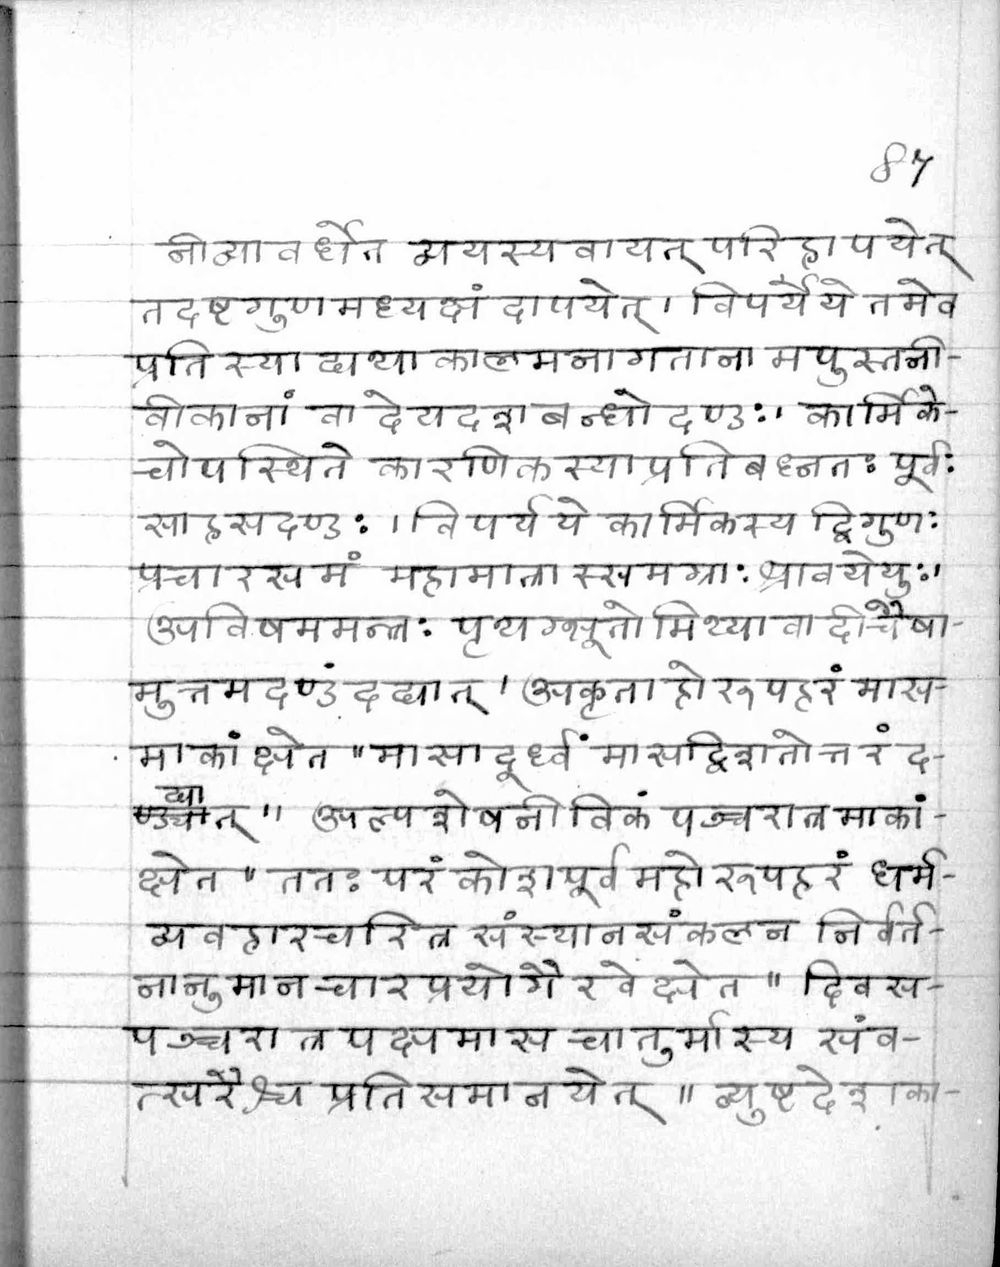 87
नीव्यावर्धेत व्ययस्य वायत् परिहापयेत्
तदष्टगुणमध्यक्षं दापयेत्। विपर्यये तमेव
प्रति स्याद्यथाकालमनागतानामपुस्तनी-
वीकानां वा देयदशबन्धो दण्डः। कार्मिके-
चोपस्थिते कारणिकस्याप्रतिबध्नतः पूर्वः
साहसदण्डः। विपर्यये कार्मिकस्य द्विगुणः
प्रचारसमं महामात्रास्समग्राः श्रावयेयुः।
अविषममन्त्रः पृथग्भूतो मिथ्यावादी चैषा-
मुत्तमदण्डं दद्यात्। अकृताहोरूपहरं मास-
माकांक्षेत॥ मासादूर्ध्वं मासद्विशतोत्तरं द-
द्यात्॥ अल्पशेषनीविकं पञ्चरात्रमाकां-
क्षेत॥ ततः परं कोशपूर्वमहोरूपहरं धर्म-
व्यवहारचरित्र संस्थानसंकलन निर्वर्त-
नानुमानचारप्रयोगैरवेक्षेत॥ दिवस-
पञ्चरात्रपक्षमास चातुर्मास्य संव-
त्सरैश्च प्रतिसमानयेत्॥ व्युष्टदेशका-